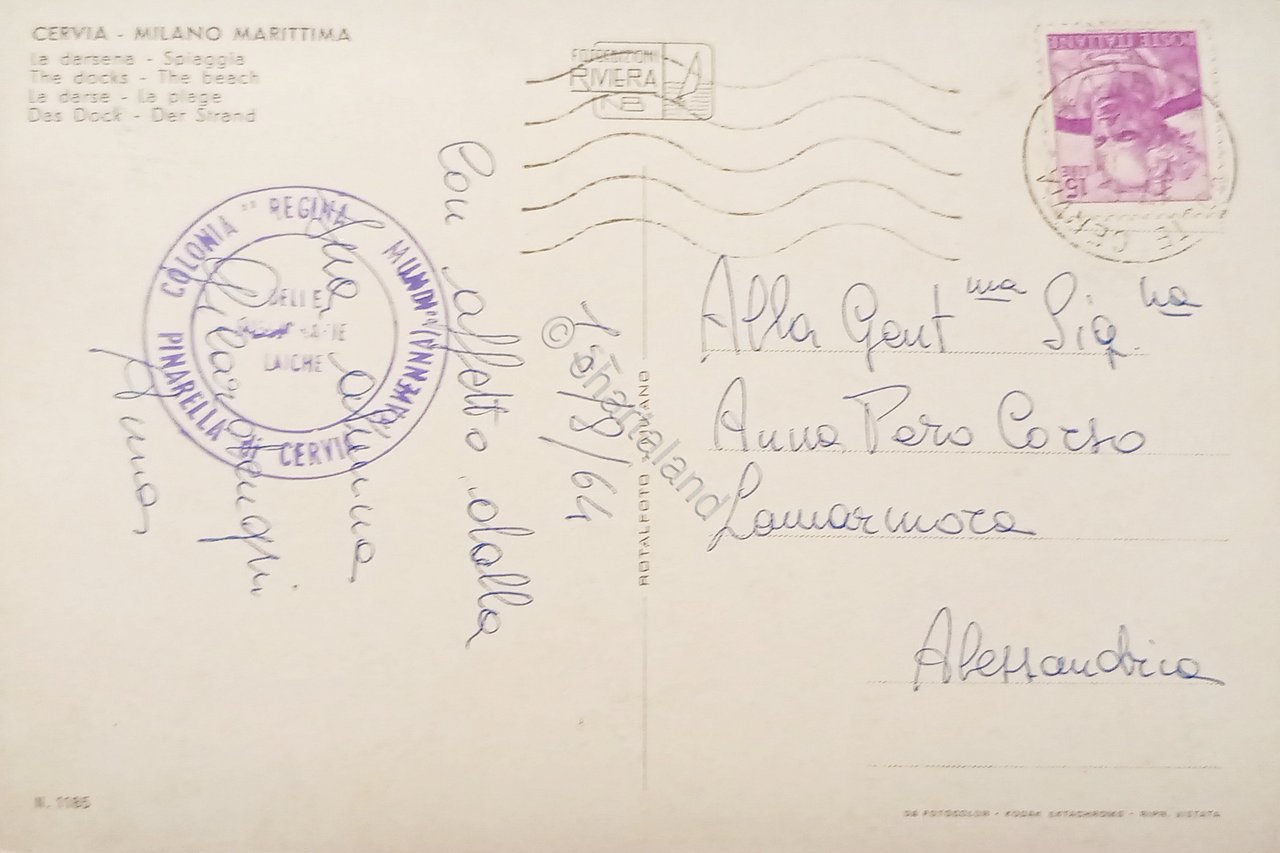 CERVIA - MILANO MARITTIMA
La darsena - Spiaggia
The docks - The beach
La darse - La plage
Das Dock - Der Strand
FOTOEDIZIONI
RIVIERA
NB
POSTE ITALIANE
15 LIRE
COLONIA "REGINA MUNDI"
PINARELLA DI CERVIA
DELLE
LAICHE
Con affetto dalla
Sua alunna
1 /8/64
© Shartaland
ROTALFOTO MILANO
Alla Gent ma Sig na
Anna Pero Corso
Lamarmora
Alessandria
N. 1185
DA FOTOCOLOR - KODAK EKTACHROME - RIPR. VIETATA